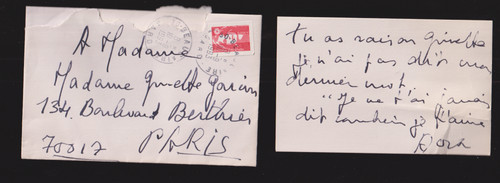 A Madame
Madame Ginette Garcin
134. Boulevard Berthier
PARIS
75017
tu as raison Ginette
je n'ai pas dit mon
dernier mot.
"Je ne t'ai jamais
dit combien je t'aime
Dora